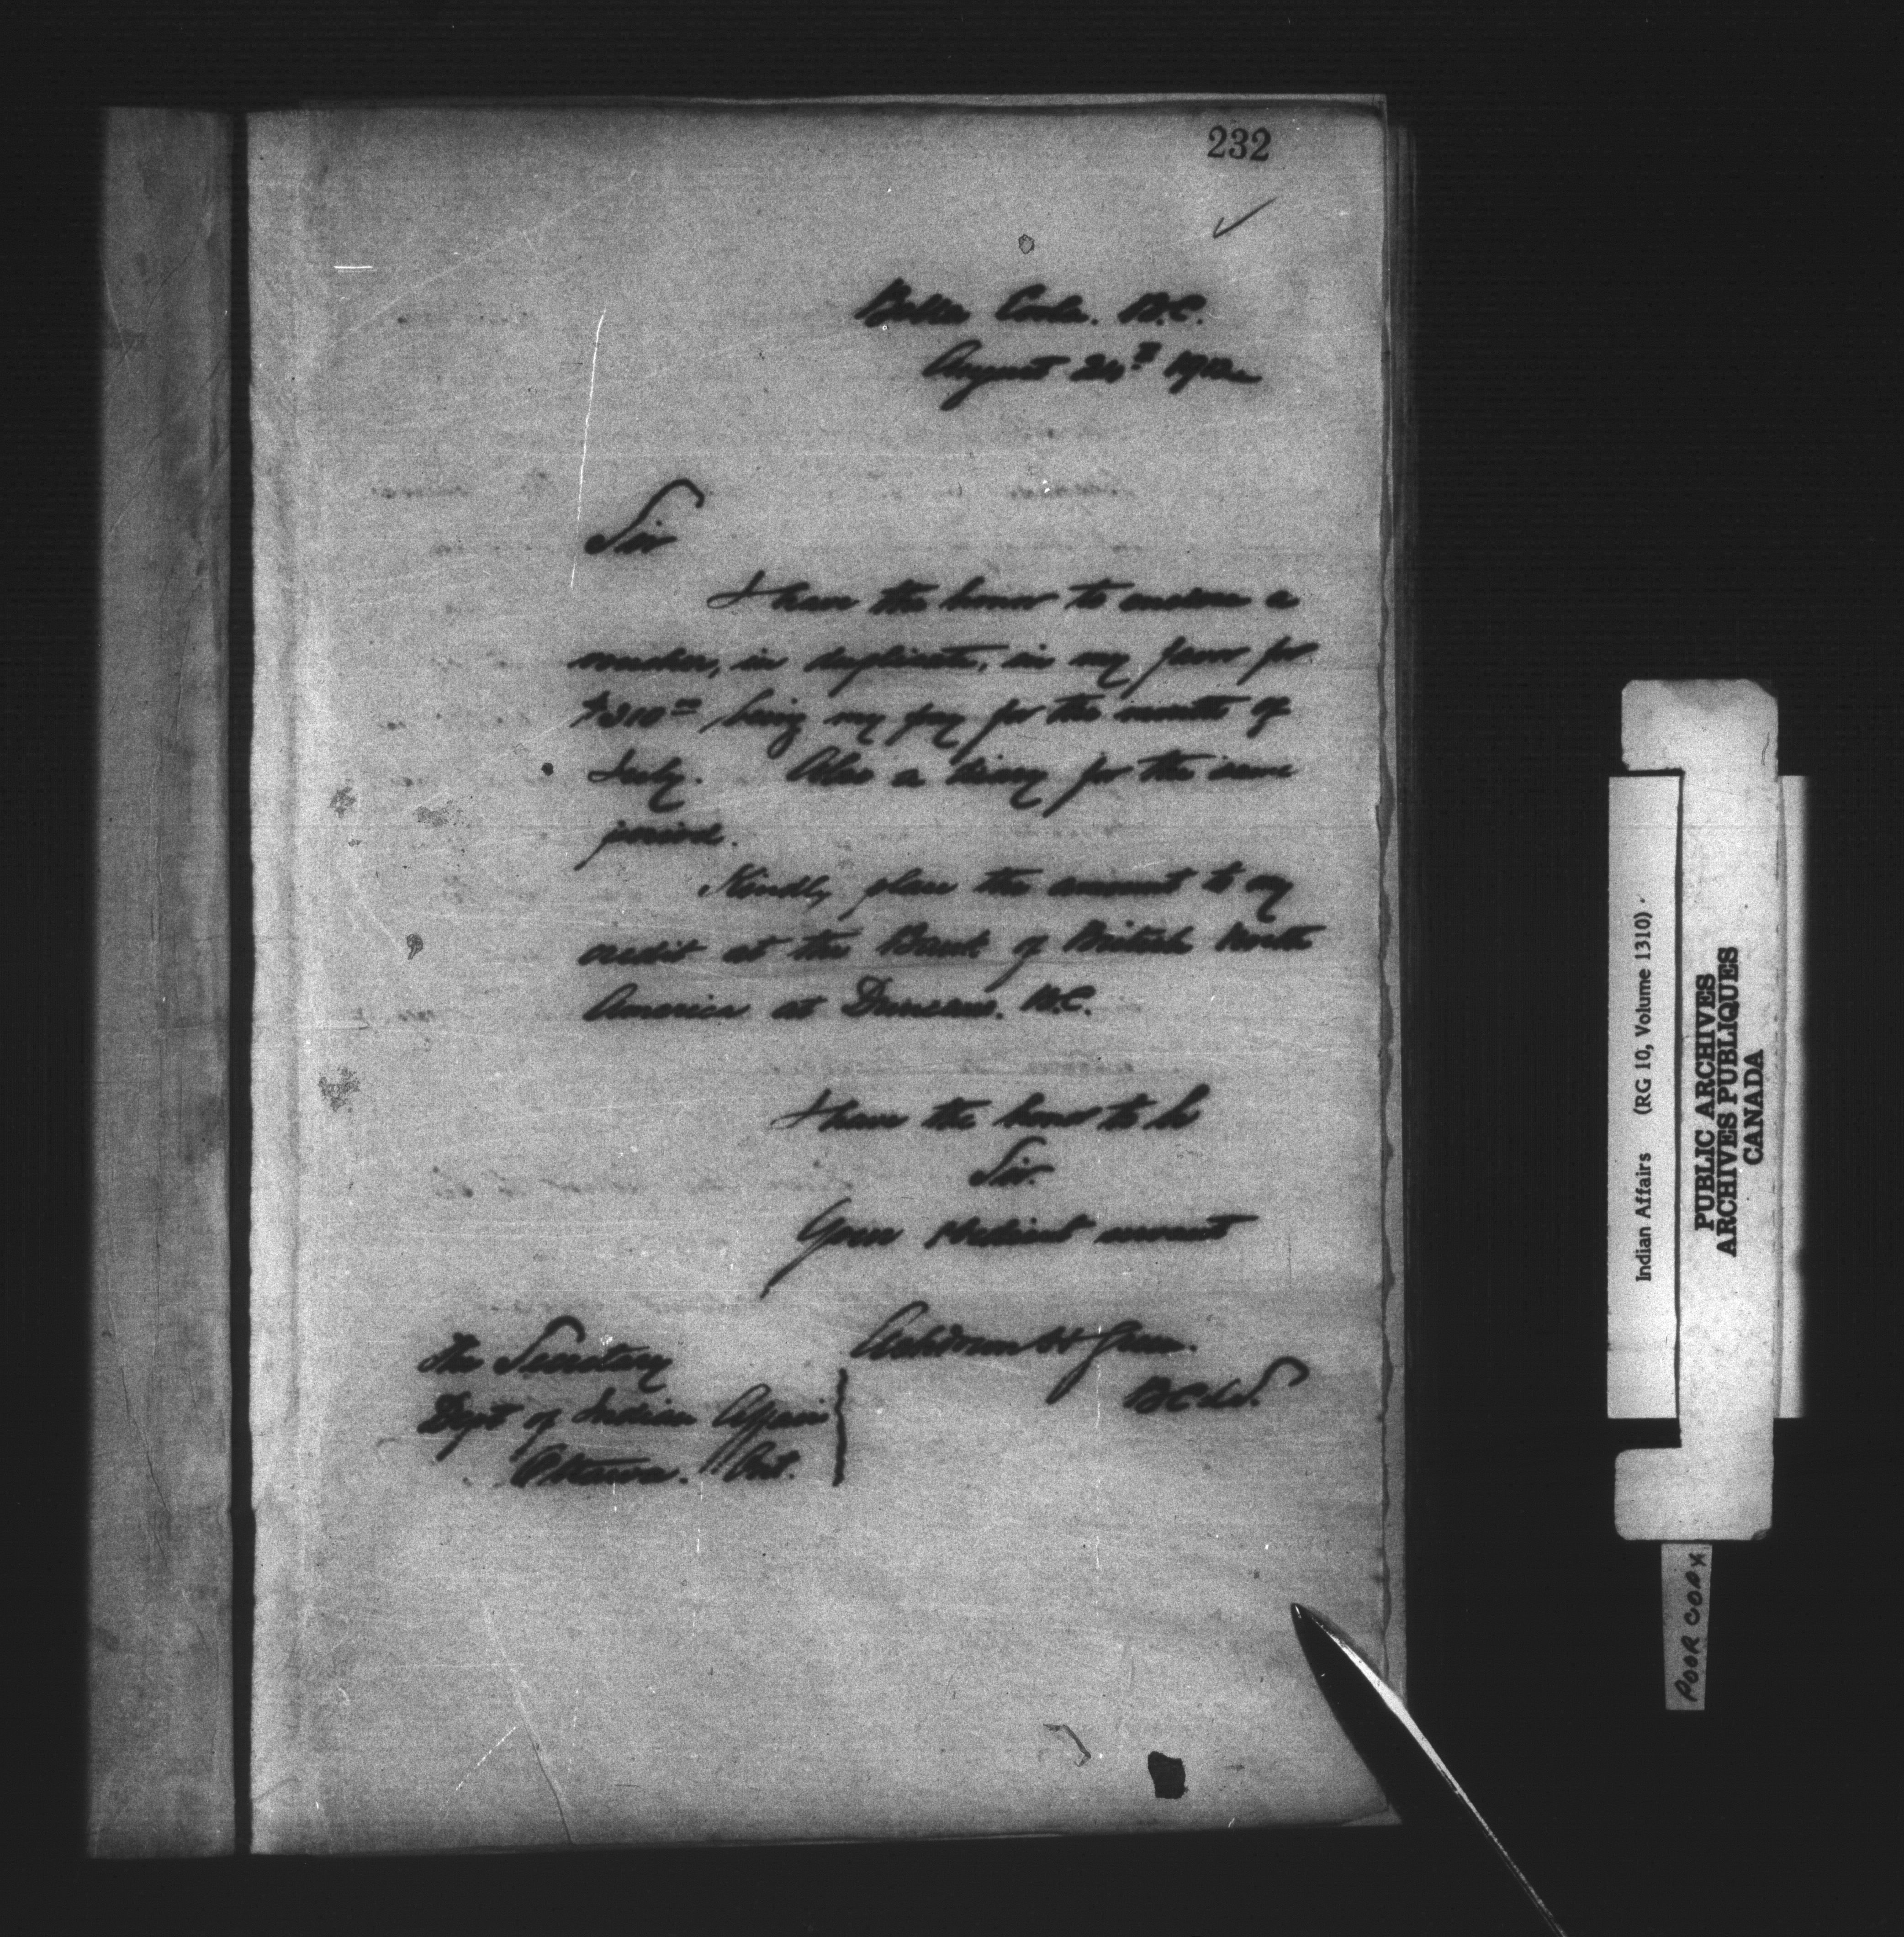 232
Bella Coola. B.C.
August 24th 1912
Sir
I have the honor to enclose a
voucher, in duplicate, in my favor for
$31000 being my pay for the month of
July. Also a diary for the same
period.
Kindly place the amount to my
credit at the Bank of British North
America at Duncans. B.C.
I have the honor to be
Sir.
Your obedient servant
Ashdown H Green.
B.C.L.S.
The Secretary
Dept of Indian Affairs
Ottawa. Ont.
Indian Affairs (RG 10, Volume 1310)
PUBLIC ARCHIVES
ARCHIVES PUBLIQUES
CANADA
POOR COPY